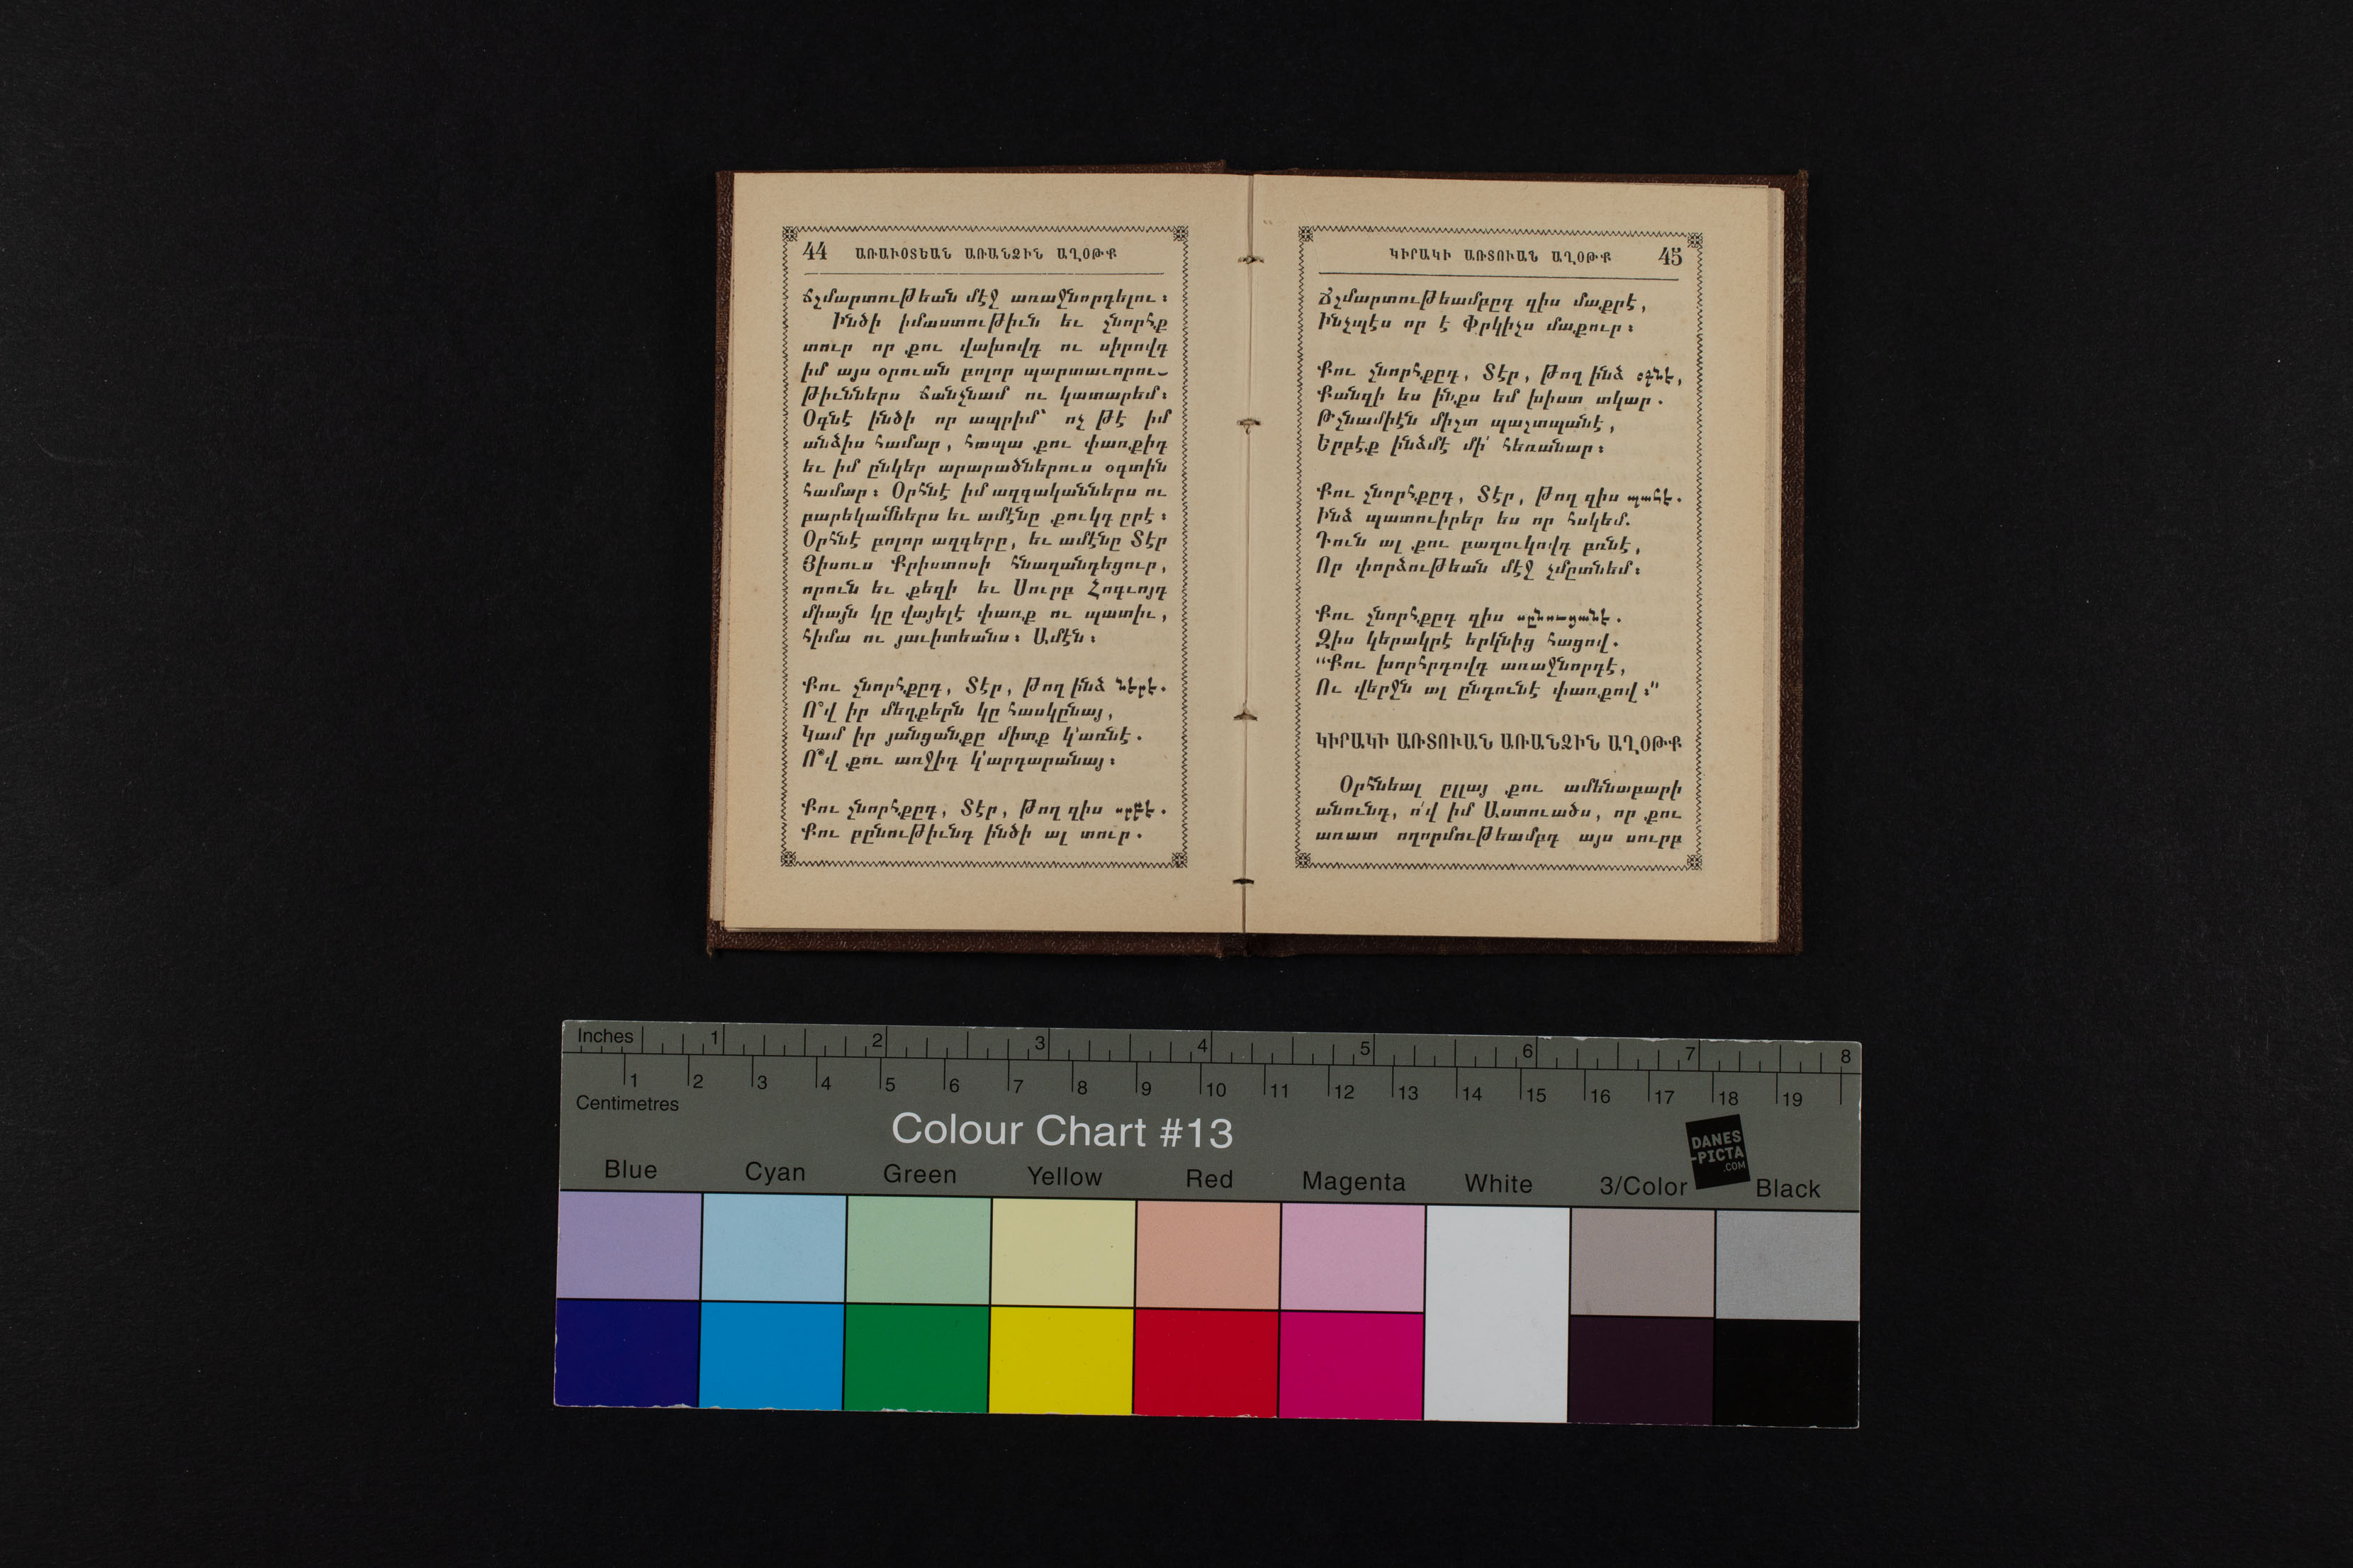 44 ԱՌԱՒՕՏԵԱՆ ԱՌԱՆՁԻՆ ԱՂՕԹՔ
ճշմարտութեան մէջ առաջնորդելու։
Ինծի իմաստութիւն եւ շնորհք
տուր որ քու վախովդ ու սիրովդ
իմ այս օրուան բոլոր պարտաւորու֊
թիւններս ճանչնամ ու կատարեմ։
Օգնէ ինծի որ ապրիմ՝ ոչ թէ իմ
անձիս համար, հապա քու փառքիդ
եւ իմ ընկեր արարածներուս օգտին
համար։ Օրհնէ իմ ազգականներս ու
բարեկամներս եւ ամէնը քուկդ ըրէ։
Օրհնէ բոլոր ազգերը, եւ ամէնը Տէր
Յիսուս Քրիստոսի հնազանդեցուր,
որուն եւ քեզի եւ Սուրբ Հոգւոյդ
միայն կը վայելէ փառք ու պատիւ,
հիմա ու յաւիտեանս։ Ամէն։
Քու շնորհքըդ, Տէր, թող ինձ ներէ.
Ո՞վ իր մեղքերն կը հասկընայ,
Կամ իր յանցանքը միտք կ'առնէ.
Ո՞վ քու առջիդ կ'արդարանայ։
Քու շնորհքըդ, Տէր, թող զիս սրբէ.
Քու բընութիւնդ ինծի ալ տուր.
ԿԻՐԱԿԻ ԱՌՏՈՒԱՆ ԱՂՕԹՔ 45
Ճշմարտութեամբըդ զիս մաքրէ,
Ինչպէս որ է Փրկիչս մաքուր։
Քու շնորհքըդ, Տէր, թող ինձ օգնէ,
Քանզի ես ինքս եմ խիստ տկար.
Թշնամիէն միշտ պաշտպանէ,
Երբէք ինձմէ մի՛ հեռանար։
Քու շնորհքըդ, Տէր, թող զիս պահէ.
Ինձ պատուիրեր ես որ հսկեմ.
Դուն ալ քու բազուկովդ բռնէ,
Որ փորձութեան մէջ չմըտնեմ։
Քու շնորհքըդ զիս սընուցանէ.
Զիս կերակրէ երկնից հացով.
“Քու խորհրդովդ առաջնորդէ,
Ու վերջն ալ ընդունէ փառքով։”
ԿԻՐԱԿԻ ԱՌՏՈՒԱՆ ԱՌԱՆՁԻՆ ԱՂՕԹՔ
Օրհնեալ ըլլայ քու ամենաբարի
անունդ, ո՛վ իմ Աստուածս, որ քու
առատ ողորմութեամբդ այս սուրբ
Inches 1 2 3 4 5 6 7 8
1 2 3 4 5 6 7 8 9 10 11 12 13 14 15 16 17 18 19
Centimetres
Colour Chart #13
DANES
-PICTA
.COM
Blue Cyan Green Yellow Red Magenta White 3/Color Black